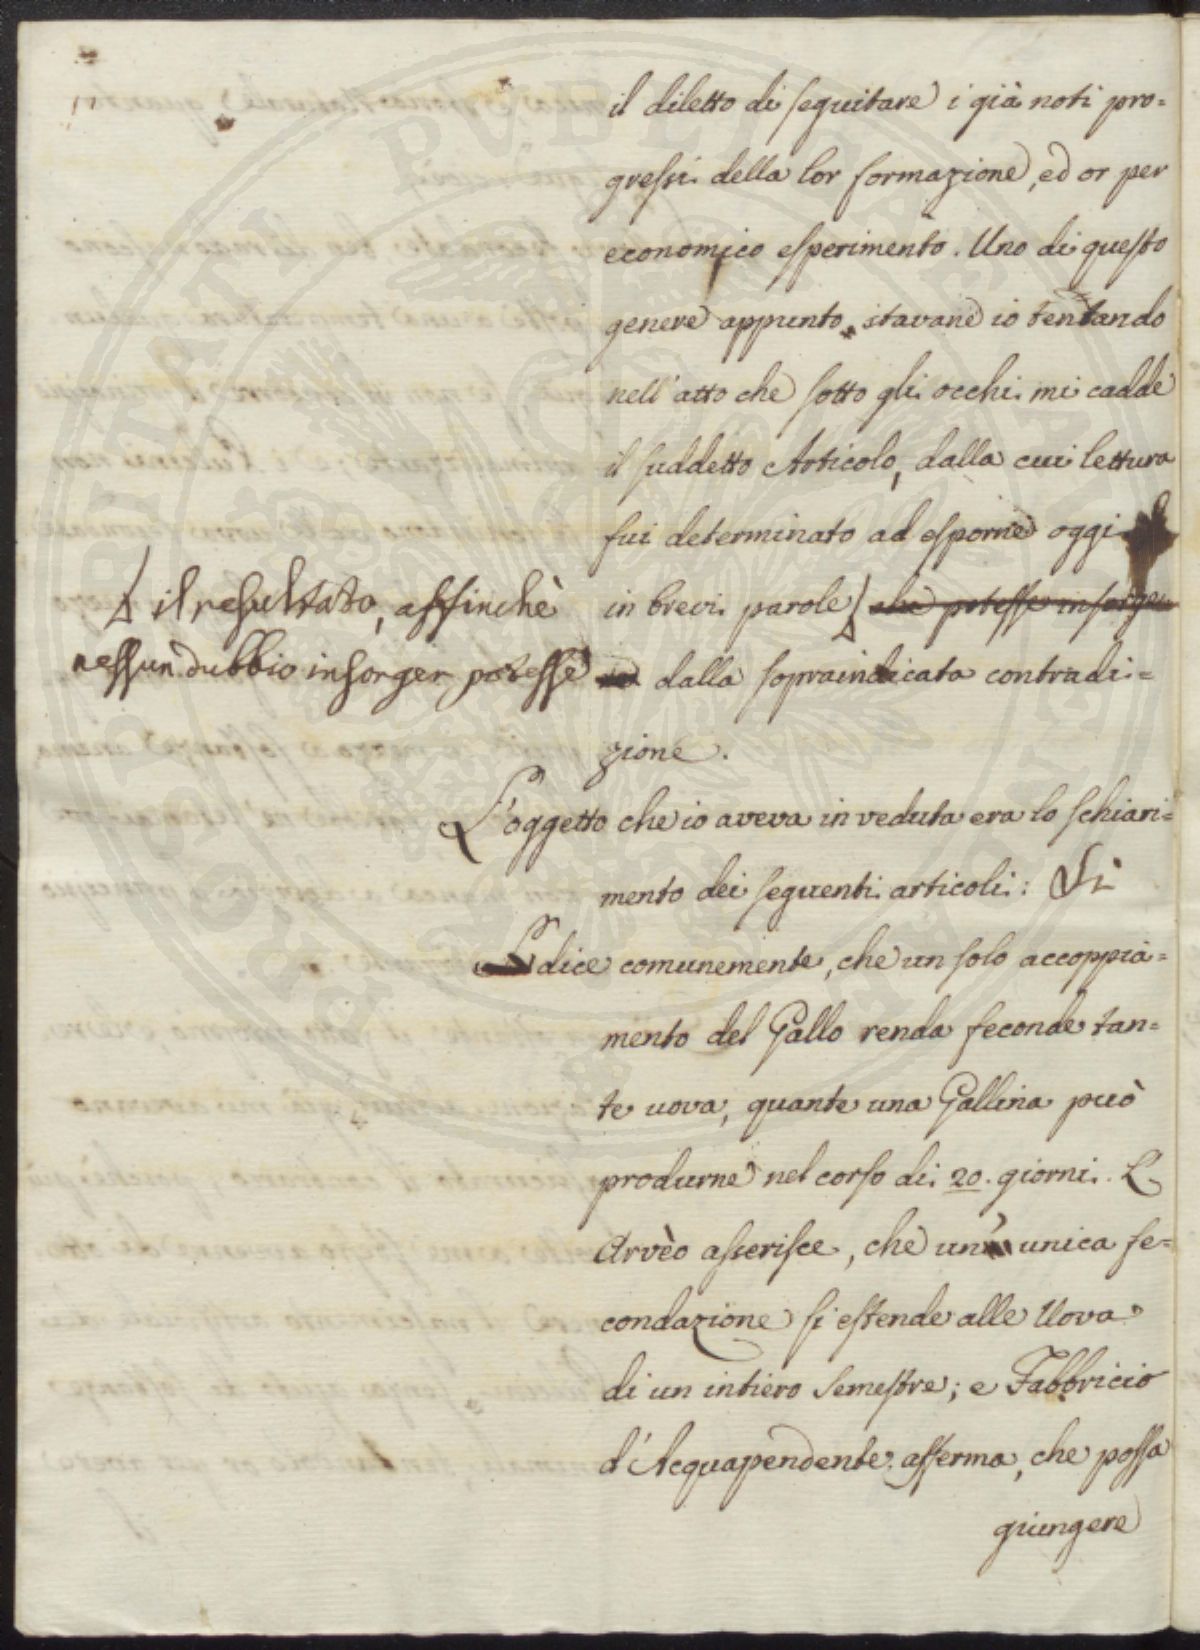 il diletto di seguitare i già noti pro=
gressi della lor formazione, ed or per
economico esperimento. Uno di questo
genere appunto stavane io tentando
nell'atto che sotto gli occhi mi cadde
il suddetto Articolo, dalla cui lettura
fui determinato ad esporne oggi
in brevi parole che potesse insorgere
il resultato, affinchè
nessun dubbio insorger potesse
dalla sopraindicata contradi=
zione.
L'oggetto che io aveva in veduta era lo schiari=
mento dei seguenti articoli: Si
dice comunemente, che un solo accoppia=
mento del Gallo renda feconde tan=
te uova, quante una Gallina può
produrne nel corso di 20. giorni. L'
Arvèo asserisce, che un' unica fe=
condazione si estende alle Uova
di un intiero semestre; e Fabbricio
d'Acquapendente afferma, che possa
giungere